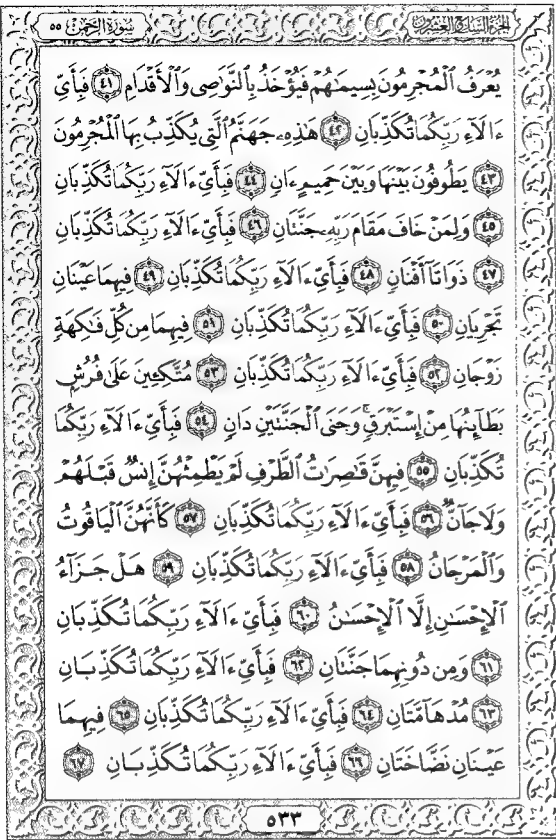 سُورَةُ الرَّحْمٰن ٥٥
الجُزْءُ السَّابِعُ وَالعِشْرُونَ
يُعْرَفُ ٱلْمُجْرِمُونَ بِسِيمَـٰهُمْ فَيُؤْخَذُ بِٱلنَّوَٰصِى وَٱلْأَقْدَامِ ٤١ فَبِأَىِّ
ءَالَآءِ رَبِّكُمَا تُكَذِّبَانِ ٤٢ هَـٰذِهِۦ جَهَنَّمُ ٱلَّتِى يُكَذِّبُ بِهَا ٱلْمُجْرِمُونَ
٤٣ يَطُوفُونَ بَيْنَهَا وَبَيْنَ حَمِيمٍ ءَانٍ ٤٤ فَبِأَىِّ ءَالَآءِ رَبِّكُمَا تُكَذِّبَانِ
٤٥ وَلِمَنْ خَافَ مَقَامَ رَبِّهِۦ جَنَّتَانِ ٤٦ فَبِأَىِّ ءَالَآءِ رَبِّكُمَا تُكَذِّبَانِ
٤٧ ذَوَاتَآ أَفْنَانٍ ٤٨ فَبِأَىِّ ءَالَآءِ رَبِّكُمَا تُكَذِّبَانِ ٤٩ فِيهِمَا عَيْنَانِ
تَجْرِيَانِ ٥٠ فَبِأَىِّ ءَالَآءِ رَبِّكُمَا تُكَذِّبَانِ ٥١ فِيهِمَا مِن كُلِّ فَـٰكِهَةٍ
زَوْجَانِ ٥٢ فَبِأَىِّ ءَالَآءِ رَبِّكُمَا تُكَذِّبَانِ ٥٣ مُتَّكِـِٔينَ عَلَىٰ فُرُشٍۭ
بَطَآئِنُهَا مِنْ إِسْتَبْرَقٍ ۚ وَجَنَى ٱلْجَنَّتَيْنِ دَانٍ ٥٤ فَبِأَىِّ ءَالَآءِ رَبِّكُمَا
تُكَذِّبَانِ ٥٥ فِيهِنَّ قَـٰصِرَٰتُ ٱلطَّرْفِ لَمْ يَطْمِثْهُنَّ إِنسٌ قَبْلَهُمْ
وَلَا جَآنٌّ ٥٦ فَبِأَىِّ ءَالَآءِ رَبِّكُمَا تُكَذِّبَانِ ٥٧ كَأَنَّهُنَّ ٱلْيَاقُوتُ
وَٱلْمَرْجَانُ ٥٨ فَبِأَىِّ ءَالَآءِ رَبِّكُمَا تُكَذِّبَانِ ٥٩ هَلْ جَزَآءُ
ٱلْإِحْسَـٰنِ إِلَّا ٱلْإِحْسَـٰنُ ٦٠ فَبِأَىِّ ءَالَآءِ رَبِّكُمَا تُكَذِّبَانِ
٦١ وَمِن دُونِهِمَا جَنَّتَانِ ٦٢ فَبِأَىِّ ءَالَآءِ رَبِّكُمَا تُكَذِّبَانِ
٦٣ مُدْهَآمَّتَانِ ٦٤ فَبِأَىِّ ءَالَآءِ رَبِّكُمَا تُكَذِّبَانِ ٦٥ فِيهِمَا
عَيْنَانِ نَضَّاخَتَانِ ٦٦ فَبِأَىِّ ءَالَآءِ رَبِّكُمَا تُكَذِّبَانِ ٦٧
٥٣٣